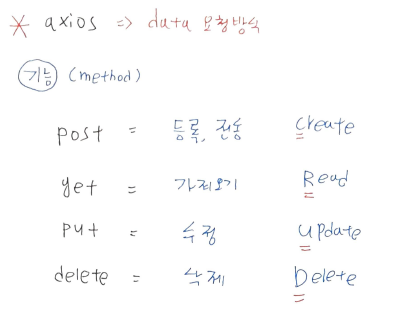 * axios => data 요청방식
기능 (method)
post = 등록, 전송 Create
get = 가져오기 Read
put = 수정 Update
delete = 삭제 Delete